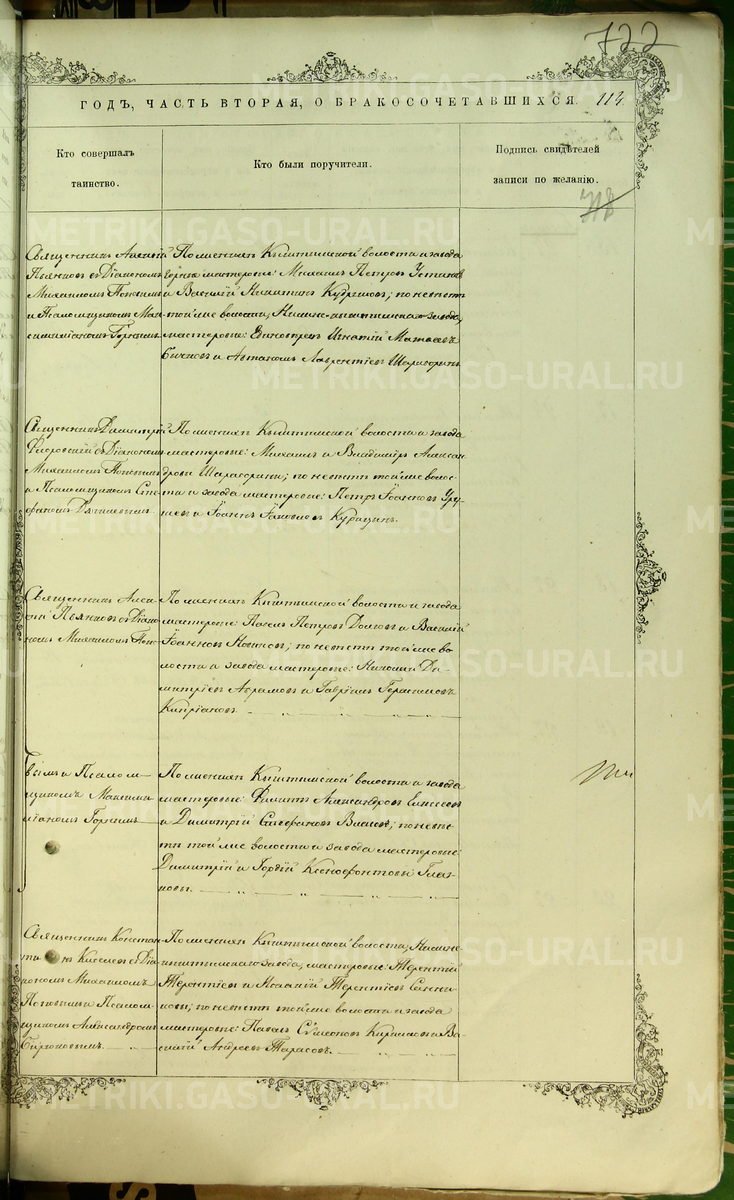 722
ГОДЪ, ЧАСТЬ ВТОРАЯ, О БРАКОСОЧЕТАВШИХСЯ. 114.
Кто совершалъ
таинство.
Кто были поручители.
Подпись свидѣтелей
записи по желанію.
718
Священникъ
Пьянковъ съ Діакономъ
Михаиломъ Поповымъ
и Псаломщикомъ Мак
симиліаномъ Горнымъ
По женихѣ Кыштымской волости и завода
мастеровые: Михаилъ Петровъ Устиновъ
и Василій Никитинъ; по невѣстѣ
той же волости, Нижне-Кыштымскаго завода,
мастеровые: Игнатій Матвеевъ
и Автаномъ Лаврентіевъ Шарагоринъ
Священникъ Димитрій
Флоровскій съ Діакономъ
Михаиломъ Поповымъ
и Псаломщикомъ Сте
фаномъ
По женихѣ Кыштымской волости и завода
мастеровые: Михаилъ и Владиміръ Алексан
дровы Шарагорины; по невѣстѣ той же волос
ти и завода мастеровые: Петръ Іоанновъ Уру
шевъ и Іоаннъ Іаковлевъ Курицынъ.
Священникъ Алек
Пьянковъ съ Діако
номъ Михаиломъ Попо
По женихѣ Кыштымской волости и завода
мастеровые: Павелъ Петровъ Долговъ и Василій
Іоанновъ Новиковъ; по невѣстѣ той же во
лости и завода мастеровые: Николай Ди
митріевъ Абрамовъ и Гавріилъ Герасимовъ
Кипріановъ
вымъ и Псалом
щикомъ Максими
ліаномъ Горнымъ
По женихѣ Кыштымской волости и завода
мастеровые: Филиппъ Александровъ Елисеевъ
и Димитрій Стефановъ Власовъ; по невѣс
тѣ той же волости и завода мастеровые:
Димитрій и Гордій Ксенофонтовы Глаз
ковы.
Священникъ Констан
тинъ Киселевъ съ Діа
кономъ Михаиломъ
Поповымъ и Псалом
щикомъ Александромъ
Бирюковымъ
По женихѣ Кыштымской волости, Нижне
кыштымскаго завода, мастеровые: Терентій
Терентіевъ и Терентіевъ
по невѣстѣ той же волости и завода
мастеровые: Павелъ Симеоновъ и Ва
силій Андреевъ Тарасовъ.
METRIKI.GASO-URAL.RU